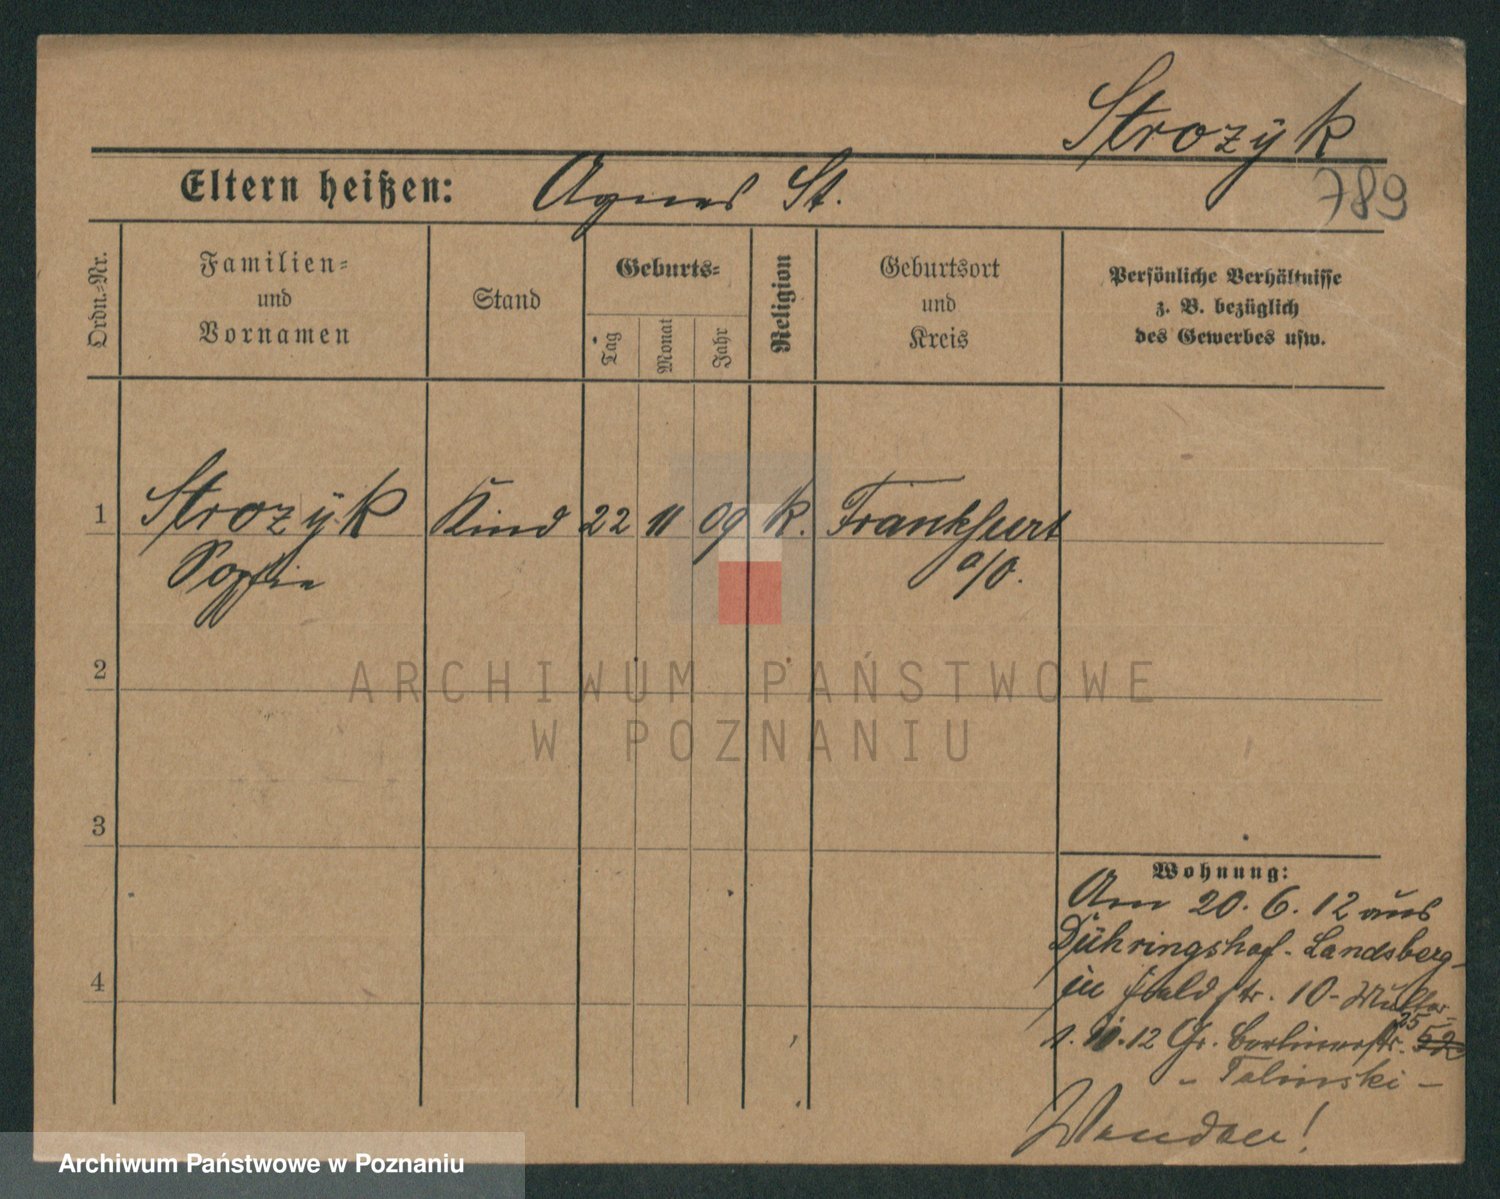 Strozyk
789
Eltern heißen: Agnes St.
Ordn.-Nr.
Familien-
und
Vornamen
Stand
Geburts-
Tag
Monat
Jahr
Religion
Geburtsort
und
Kreis
Persönliche Verhältnisse
z. B. bezüglich
des Gewerbes usw.
1 Strozyk Kind 22 11 09 k. Frankfurt
Sophie a/O.
2
3
4
ARCHIWUM PAŃSTWOWE
W POZNANIU
Wohnung:
Am 20. 6. 12 aus
Dühringshof - Landsberg -
in Feldstr. 10 -
1. 11. 12 Gr. Berlinerstr. 25
- Talinski -
Wenden!
Archiwum Państwowe w Poznaniu